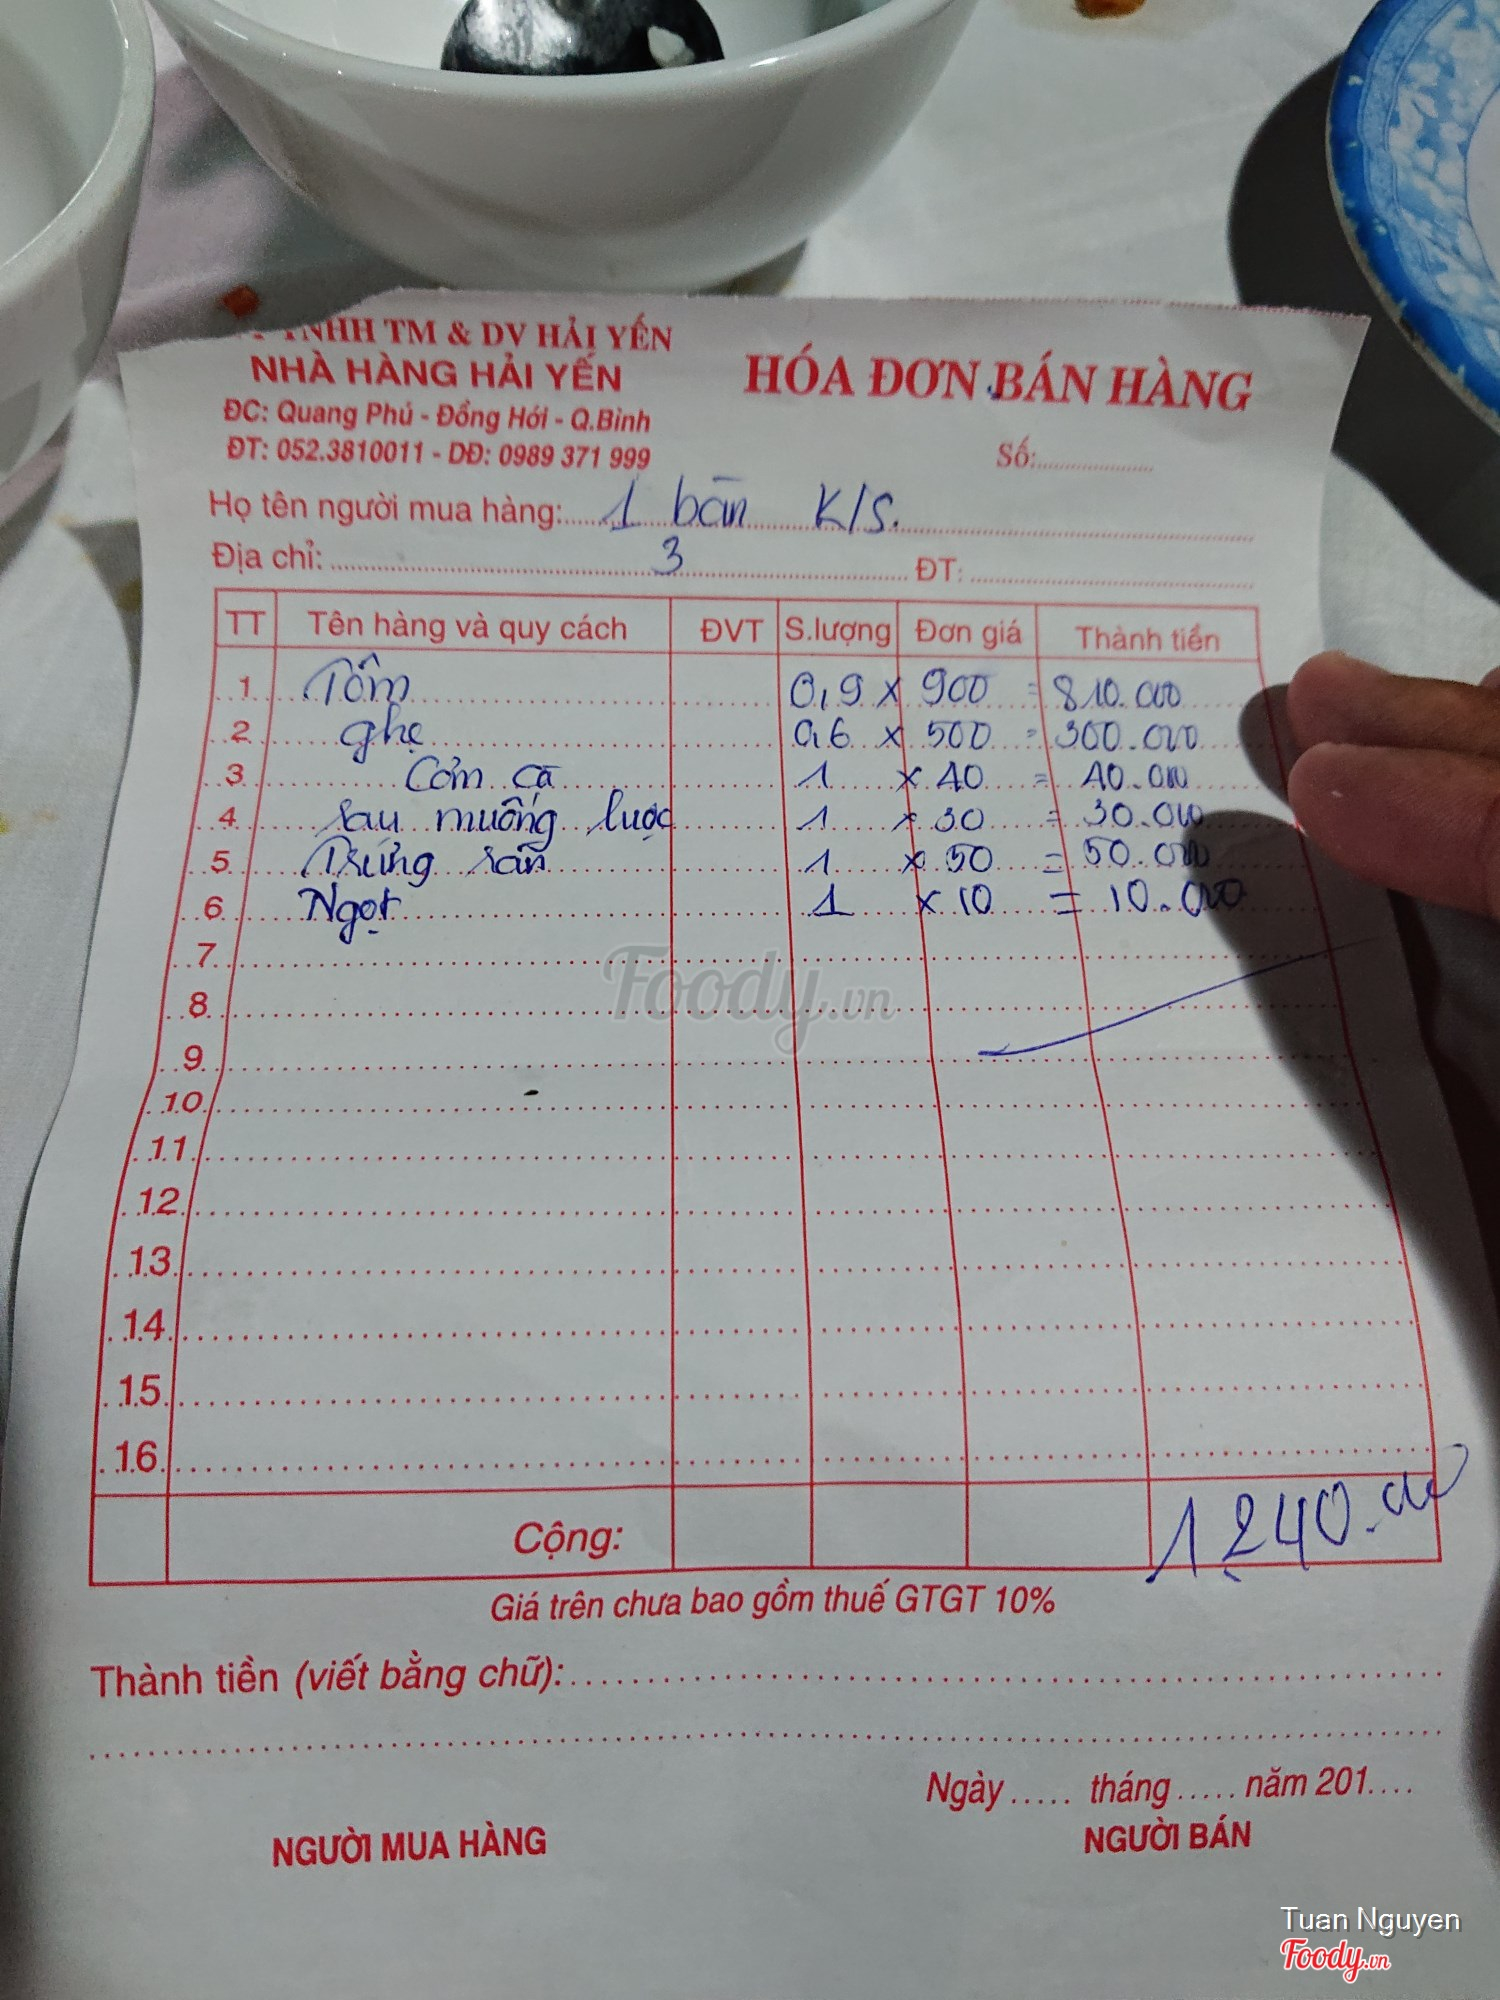 TNHH TM & DV HẢI YẾN
NHÀ HÀNG HẢI YẾN
ĐC: Quang Phú - Đồng Hới - Q.Bình
ĐT: 052.3810011 - DĐ: 0989 371 999
HÓA ĐƠN BÁN HÀNG
Số:
Họ tên người mua hàng: 1 bàn K/S.
Địa chỉ: 3 ĐT:
TT Tên hàng và quy cách ĐVT S.lượng Đơn giá Thành tiền
1 Tôm 0,9 x 900 = 810.000
2 ghẹ 0,6 x 500 = 300.000
3 Cơm cà 1 x 40 = 40.000
4 rau muống luộc 1 x 30 = 30.000
5 Trứng rán 1 x 50 = 50.000
6 Ngọt 1 x 10 = 10.000
7
8
9
10
11
12
13
14
15
16
Cộng: 1240.000
Giá trên chưa bao gồm thuế GTGT 10%
Thành tiền (viết bằng chữ):
Ngày ..... tháng ..... năm 201....
NGƯỜI MUA HÀNG NGƯỜI BÁN
Foody.vn
Tuan Nguyen
Foody.vn